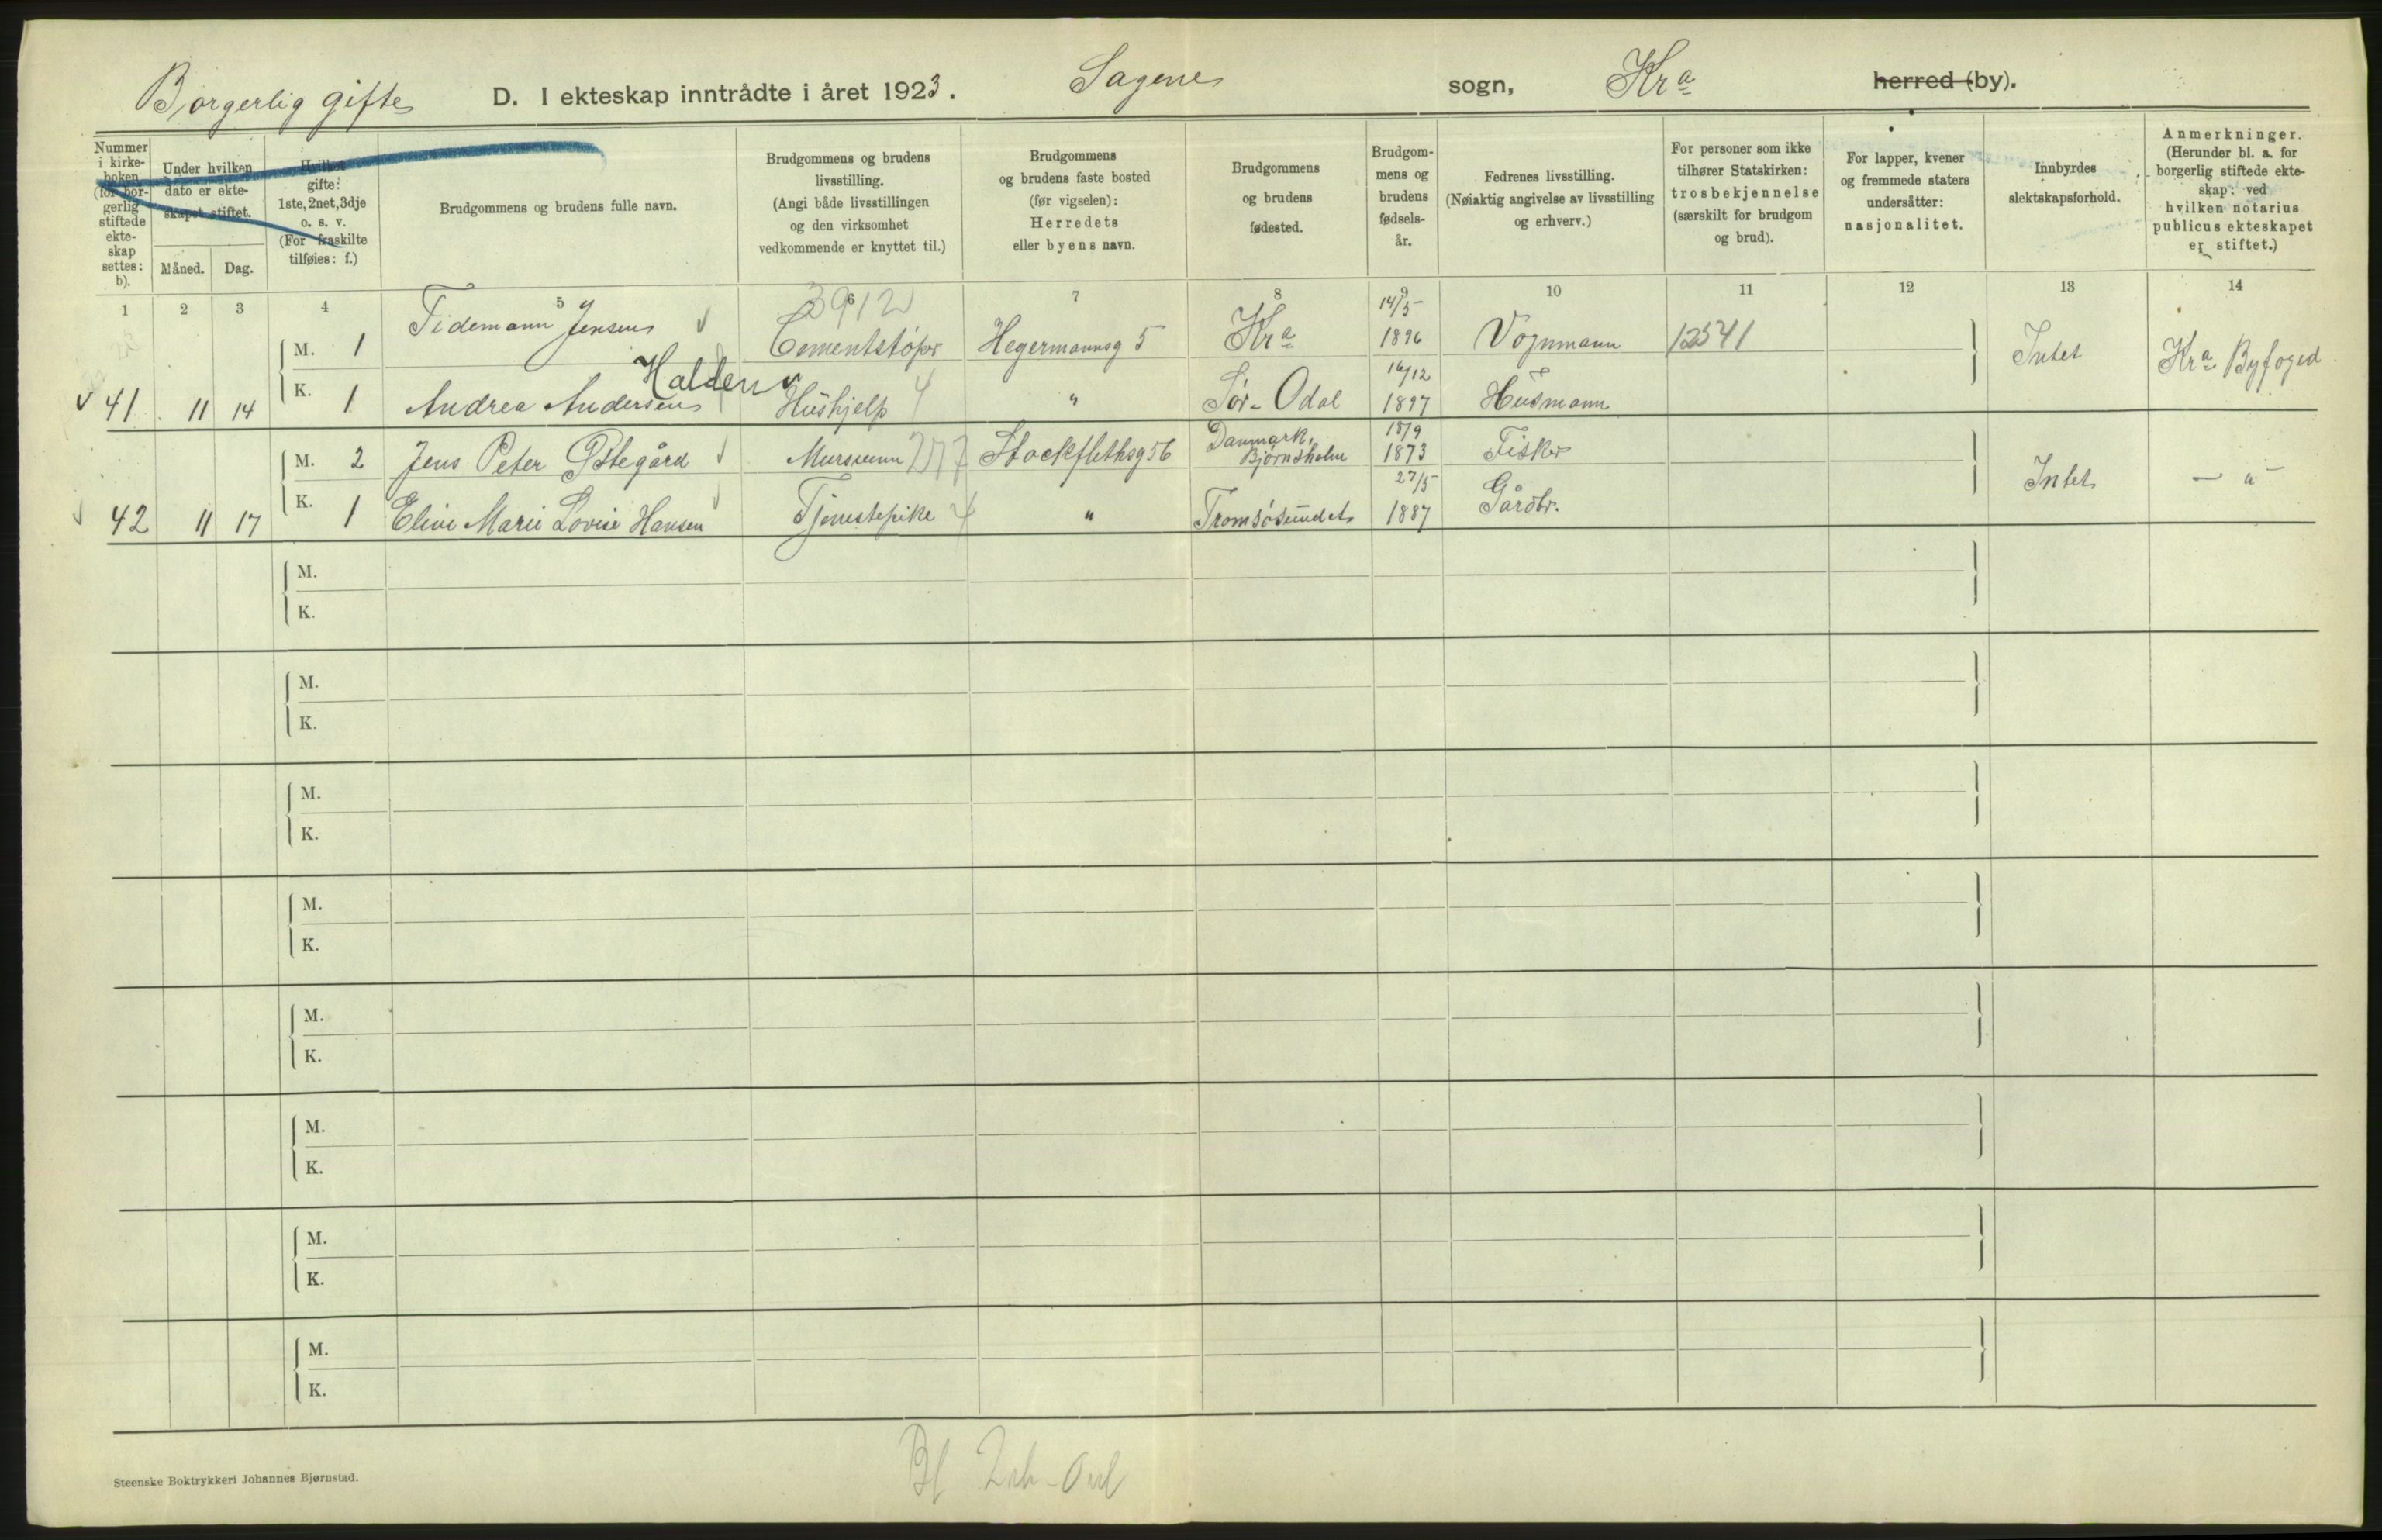 Borgerlig gifte D. I ekteskap inntrådte i året 1923. Sagene sogn, Kra herred (by).
Nummer i kirke-boken (for bor-gerlig stiftede ekte-skap settes: b).
Under hvilken dato er ekte-skapet stiftet.
Måned. Dag.
Hvilket gifte: 1ste, 2net, 3dje o. s. v. (For fraskilte tilføies: f.)
Brudgommens og brudens fulle navn.
Brudgommens og brudens livsstilling. (Angi både livsstillingen og den virksomhet vedkommende er knyttet til.)
Brudgommens og brudens faste bosted (før vigselen): Herredets eller byens navn.
Brudgommens og brudens fødested.
Brudgom-mens og brudens fødsels-år.
Fedrenes livsstilling. (Nøiaktig angivelse av livsstilling og erhverv.)
For personer som ikke tilhører Statskirken: trosbekjennelse (særskilt for brudgom og brud).
For lapper, kvener og fremmede staters undersåtter: nasjonalitet.
Innbyrdes slektskapsforhold.
Anmerkninger. (Herunder bl. a. for borgerlig stiftede ekte-skap: ved hvilken notarius publicus ekteskapet er stiftet.)
1 2 3 4 5 6 7 8 9 10 11 12 13 14
3912
M. 1 Tidemann Jensen Cementstøper Hegermannsg 5 Kra 14/5 1896 Vognmann 12541 Intet Kra Byfoged
Halden
41 11 14 K. 1 Andrea Andersen Hushjelp 4 " Sør-Odal 16/12 1897 Husmann
M. 2 Jens Peter Østegård Mursvenn Stockflethsg 56 Danmark, Bjørnsholm 18/9 1873 Fisker Intet — " —
42 11 17 K. 1 Eline Marie Lovise Hansen Tjenestepike 4 " Tromsøsundet 27/5 1887 Gårdbr.
M.
K.
M.
K.
M.
K.
M.
K.
M.
K.
M.
K.
M.
K.
M.
K.
Steenske Boktrykkeri Johannes Bjørnstad.